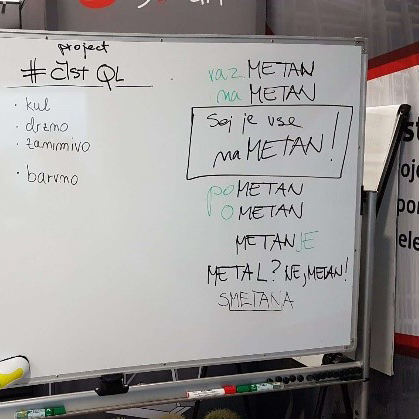 project
#čist QL
· kul
· drzno
· zanimivo
· barvno
razMETAN
naMETAN
Saj je vse
naMETAN!
poMETAN
OMETAN
METANJE
METAL? NE, METAN!
SMETANA